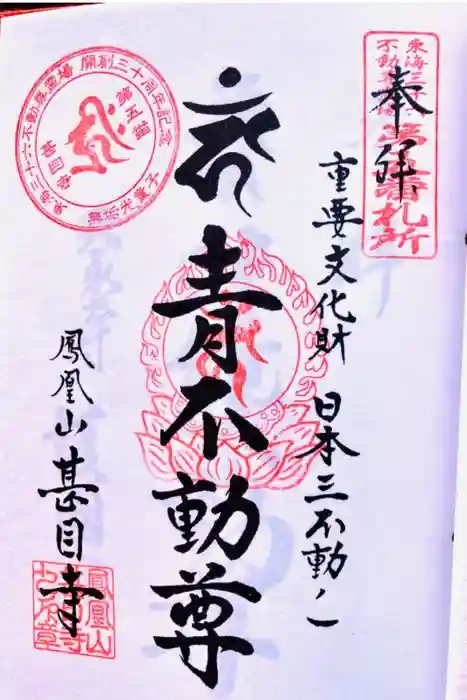 奉拝
東海三十六
不動尊霊場
第五番札所
重要文化財 日本三不動ノ一
青不動尊
鳳凰山 甚目寺
東海三十六不動尊霊場 開創三十周年記念
鳳凰山